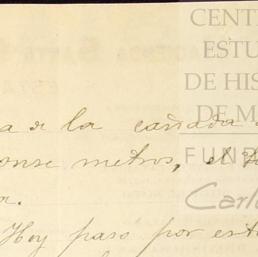 CENT
ESTU
DE HIS
DE M
FUND
Carl
a a la cañada
onse metros, el
a.
Hoy paso por est